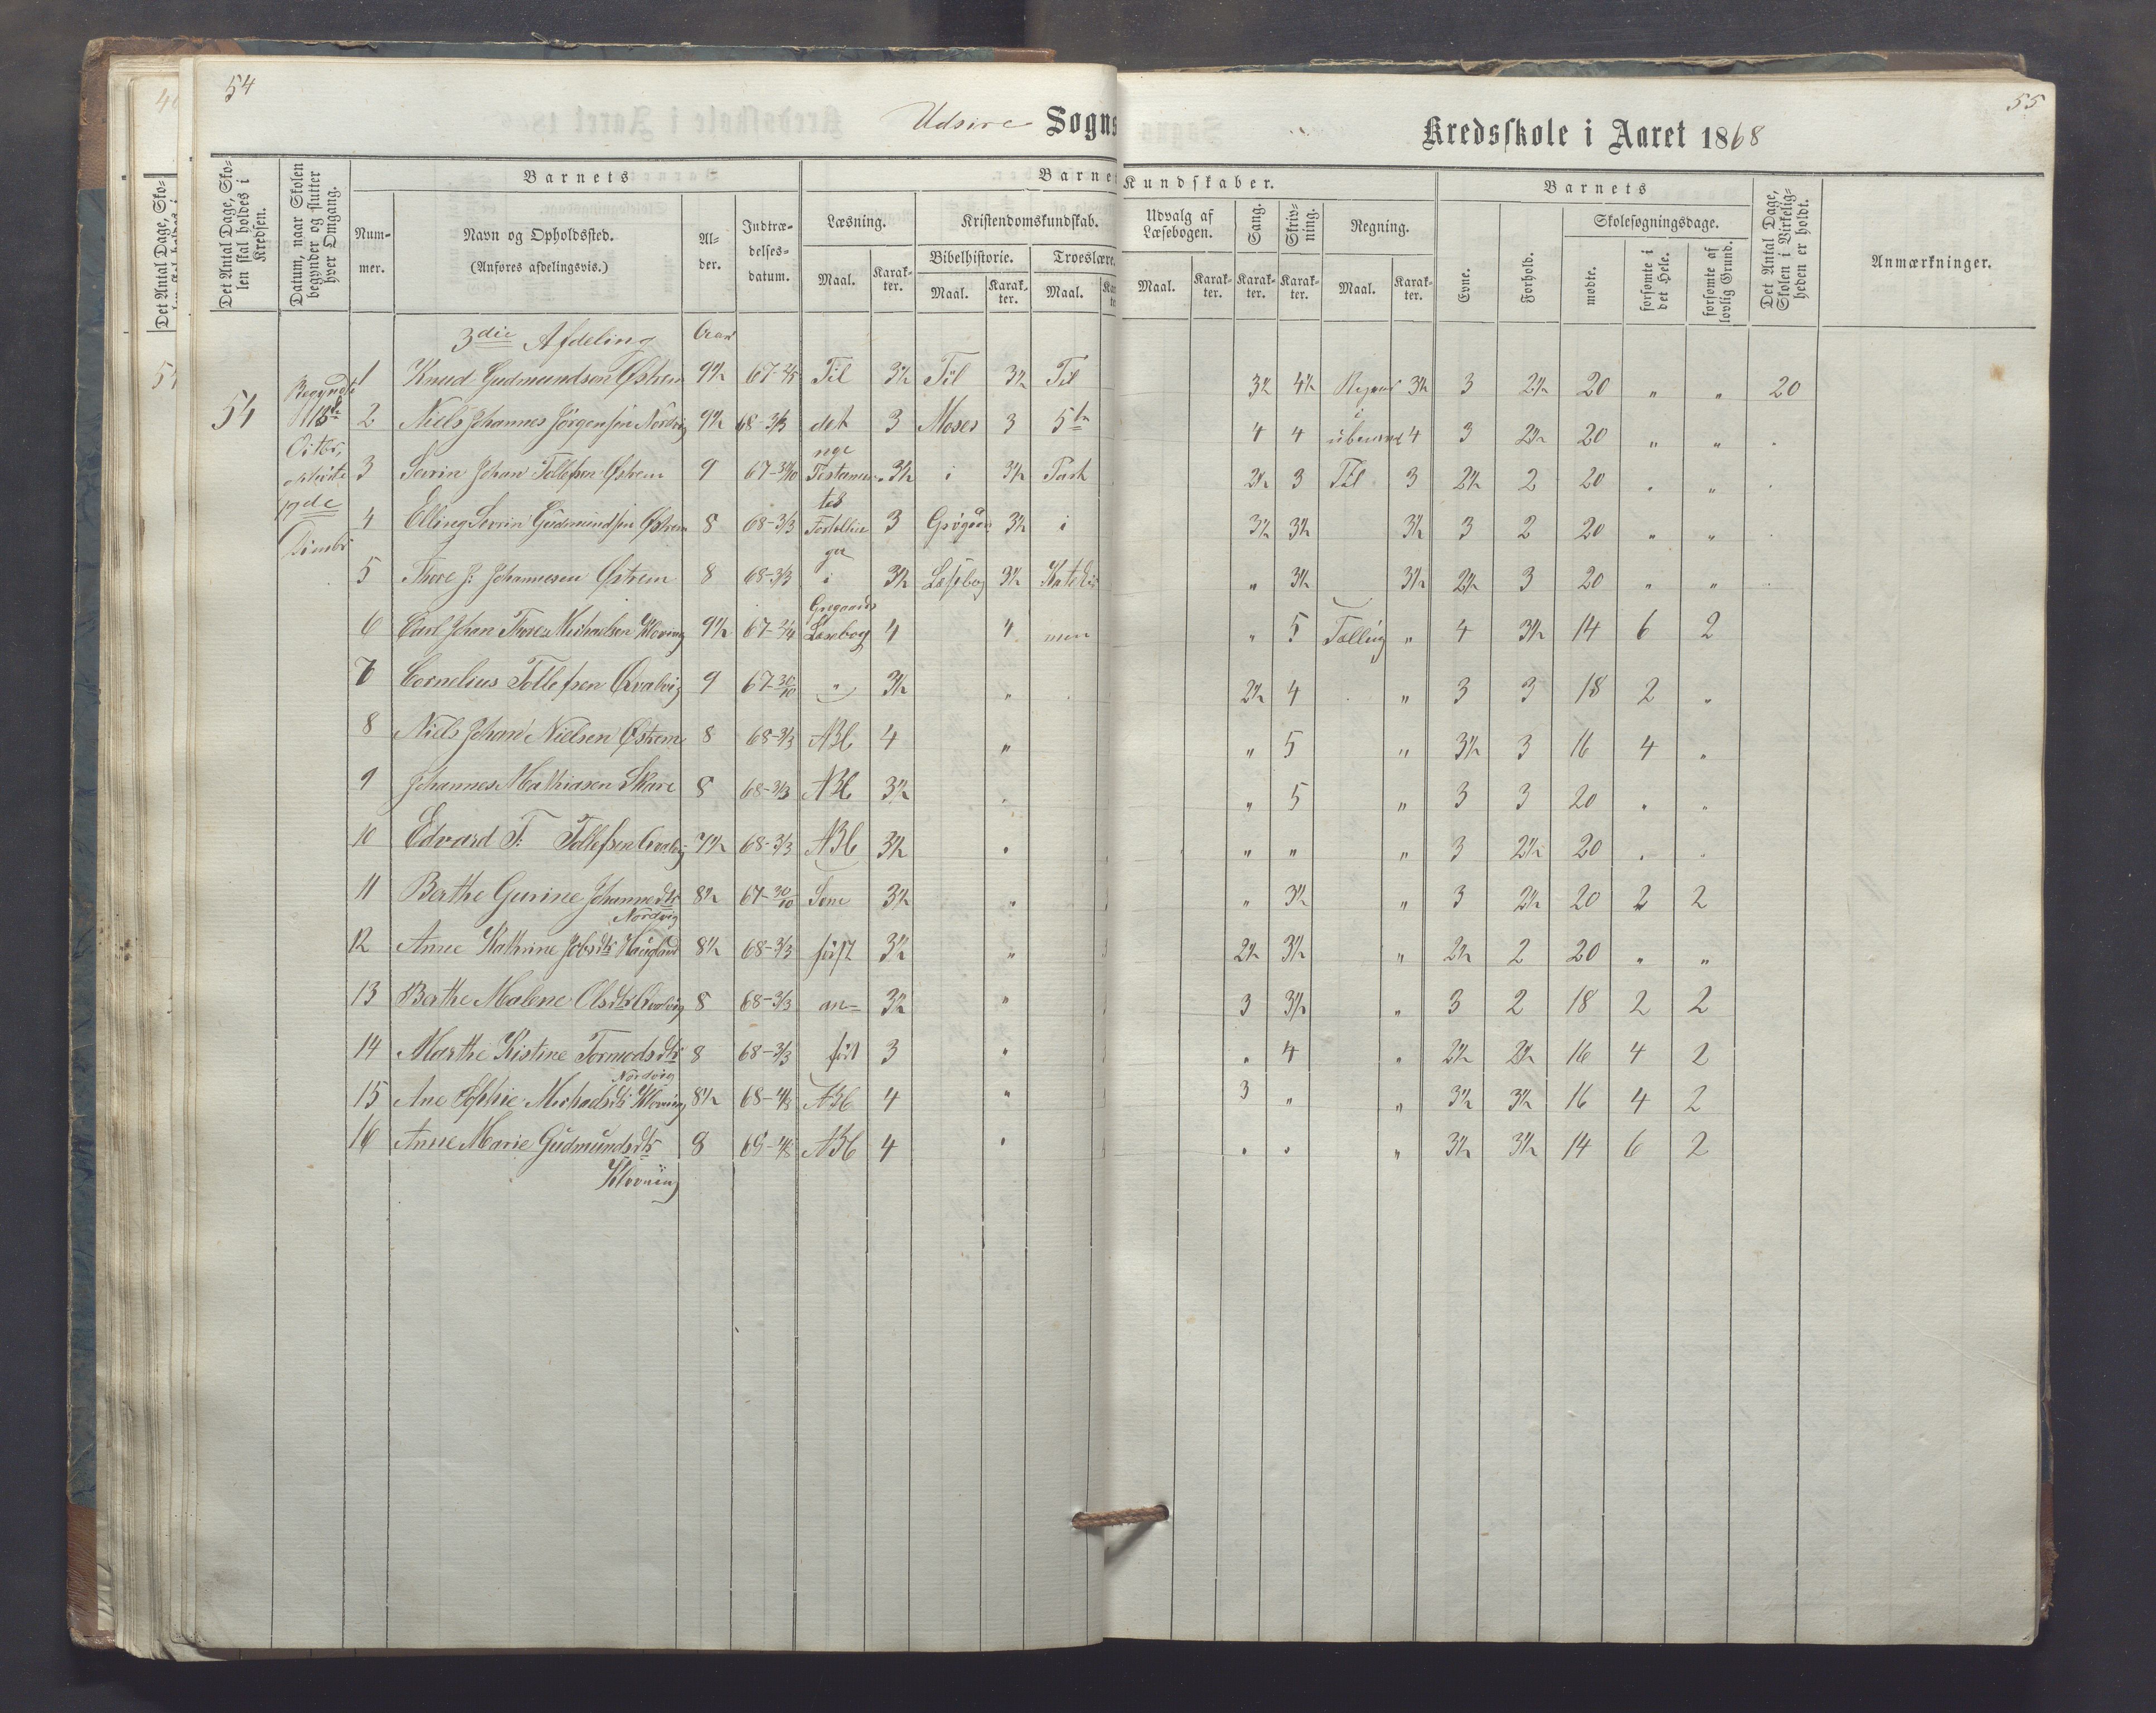 54
55
Udsire Sogns Kredsskole i Aaret 1868
Det Antal Dage, Skolen skal holdes i Kredsen.
Datum, naar Skolen begynder og slutter hver Omgang.
Barnets
Nummer.
Navn og Opholdssted.
(Anføres afdelingsvis.)
Alder.
Indtrædelsesdatum.
Barnets Kundskaber.
Læsning. Maal. Karakter.
Kristendomskundskab.
Bibelhistorie. Maal. Karakter.
Troeslære. Maal.
Udvalg af Læsebogen. Maal. Karakter.
Sang. Karakter.
Skrivning. Karakter.
Regning. Maal. Karakter.
Barnets
Evne.
Forhold.
Skolesøgningsdage.
mødte.
forsømte i det Hele.
forsømte af lovlig Grund.
Det Antal Dage, Skolen i Virkeligheden er holdt.
Anmærkninger.
3die Afdeling Aar
54
1 Knud Gudmundsen Østrem 9½ 67 Til 3½ Til 3½ Til 3½ 4½ 3½ 3 2½ 20 " " 20
2 Niels Johannes Jørgensen Nordvig 9½ 68-3/3 det 3 Moses 3 5te 4 4 4 3 2½ 20 " "
nye
3 Sevrin Johan Tollefsen Østrem 9 67-30/10 3½ i 3½ Part 2½ 3 Til 3 2½ 2 20 " "
4 Elling Sevrin Gudmundsen Østrem 8 68-3/3 3 3½ i 3½ 3½ 3½ 3 2 20 " "
5 Thore J: Johannesen Østrem 8 68-3/3 i 3½ Læsebog 3½ " 3½ 3½ 2½ 3 20 " "
Gregaards
6 Carl Johan Thores Michaelsen Kloving 9½ 67 Læsebog 4 4 " 5 Tælling " 4 3½ 14 6 2
7 Cornelius Tollefsen Qvalvig 9 67-30/10 " 3½ " 2½ 4 " 3 3 18 2 "
8 Niels Johan Nielsen Østrem 8 68-3/3 ABC 4 " " 5 " 3½ 3 16 4 "
9 Johannes Mathiasen Skare 8 68-3/3 ABC 3½ " 5 " 3 3 20 " "
10 Edvard T: Tollefsen Qvalvig 7½ 68-3/3 ABC 3½ " " " " 3 2½ 20 " "
11 Berthe Gurine Johannesdtr 8½ 67-30/10 3½ " " 3½ " 3 2½ 20 2 2
Nordvig
12 Anne Kathrine Jobsdtr Hauglad 8½ 68-3/3 3½ " 2½ 3½ " 2½ 2 20 " "
13 Berthe Malene Olsdtr Qvalvig 8 68-3/3 an= 3½ " 3 3½ " 3 2 18 2 2
14 Marthe Kistine Tormodsdtr 8 68-3/3 3 " " 4 " 2½ 2½ 16 4 2
Nordvig
15 Ane Sophie Michaelsdtr Kloving 8½ 68 ABC 4 " 3 " " 3½ 3½ 16 4 2
16 Anne Marie Gudmundsdtr 8 ABC 4 " " " " 3½ 3½ 14 6 2
Kloving